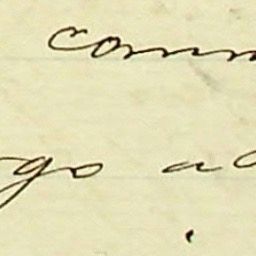 comm
go a